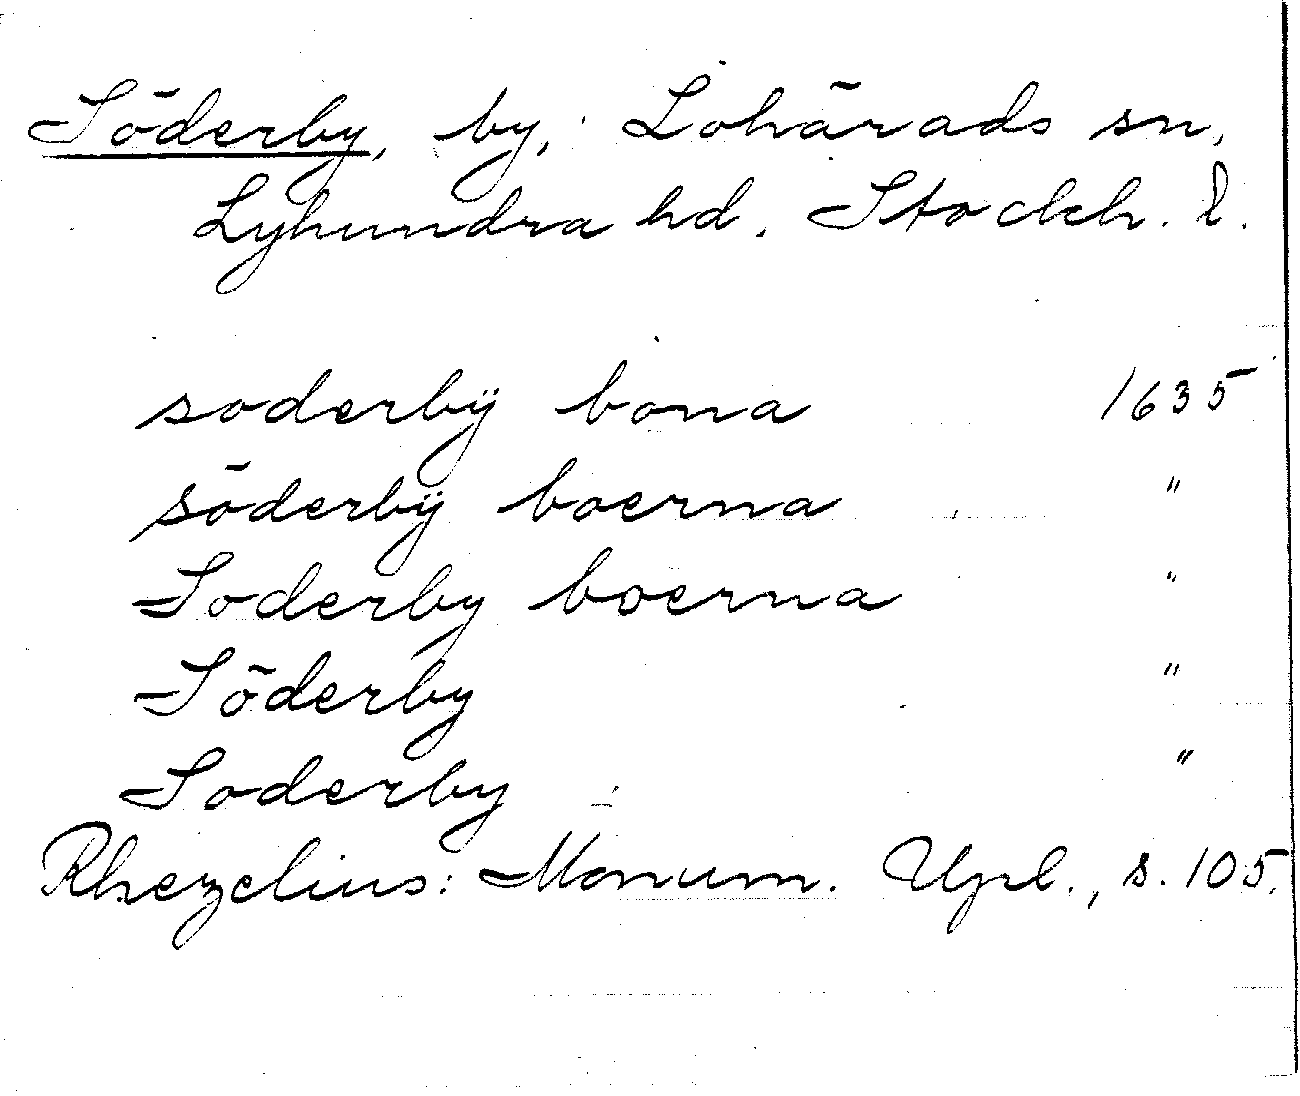 Söderby, by, Lohärads sn,
Lyhundra hd. Stockh. l.
soderbÿ bona 1635
söderbÿ boerna "
Soderby boerna "
Söderby "
Soderby "
Rhezelius: Monum. Upl., s. 105.